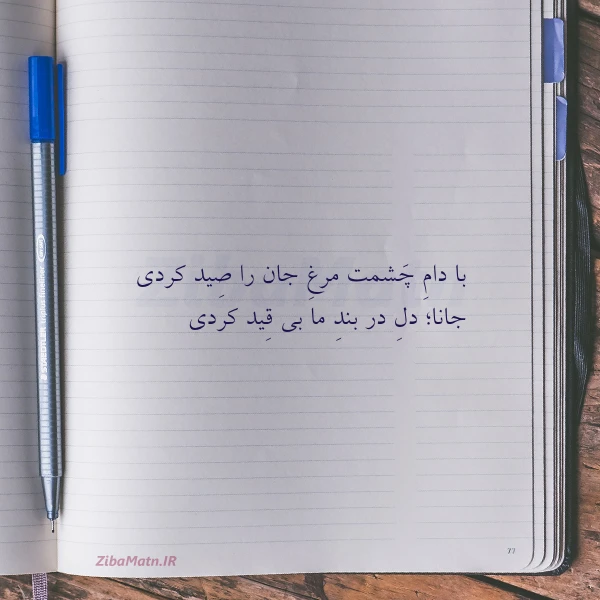 با دامِ چَشمت مرغِ جان را صِید کردی
جانا؛ دلِ در بندِ ما بی قِید کردی
77
ZibaMatn.IR